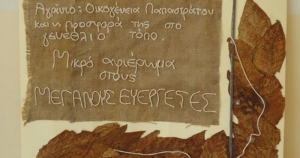 Αγρίνιο: Οικογένεια Παπαστράτου
και η προσφορά της στο
γενέθλιο τόπο.
Μικρό αφιέρωμα
στους
ΜΕΓΑΛΟΥΣ ΕΥΕΡΓΕΤΕΣ